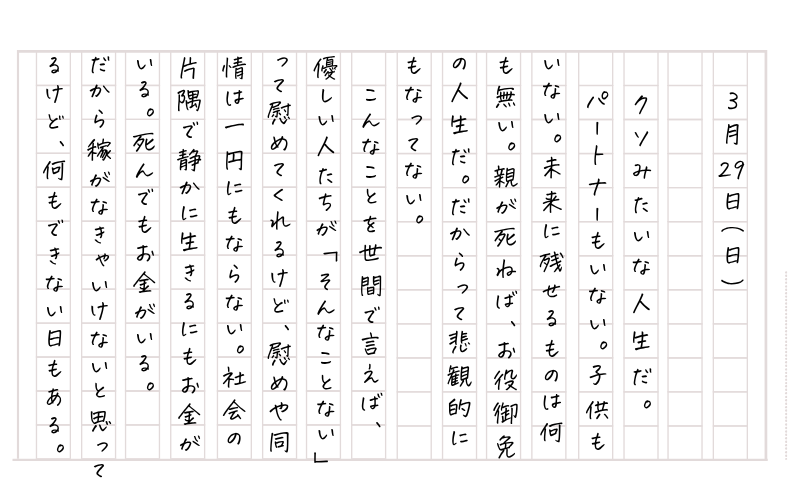 3月29日(日)
クソみたいな人生だ。
パートナーもいない。子供も
いない。未来に残せるものは何
も無い。親が死ねば、お役御免
の人生だ。だからって悲観的に
もなってない。
こんなことを世間で言えば、
優しい人たちが「そんなことない」
って慰めてくれるけど、慰めや同
情は一円にもならない。社会の
片隅で静かに生きるにもお金が
いる。死んでもお金がいる。
だから稼がなきゃいけないと思って
るけど、何もできない日もある。